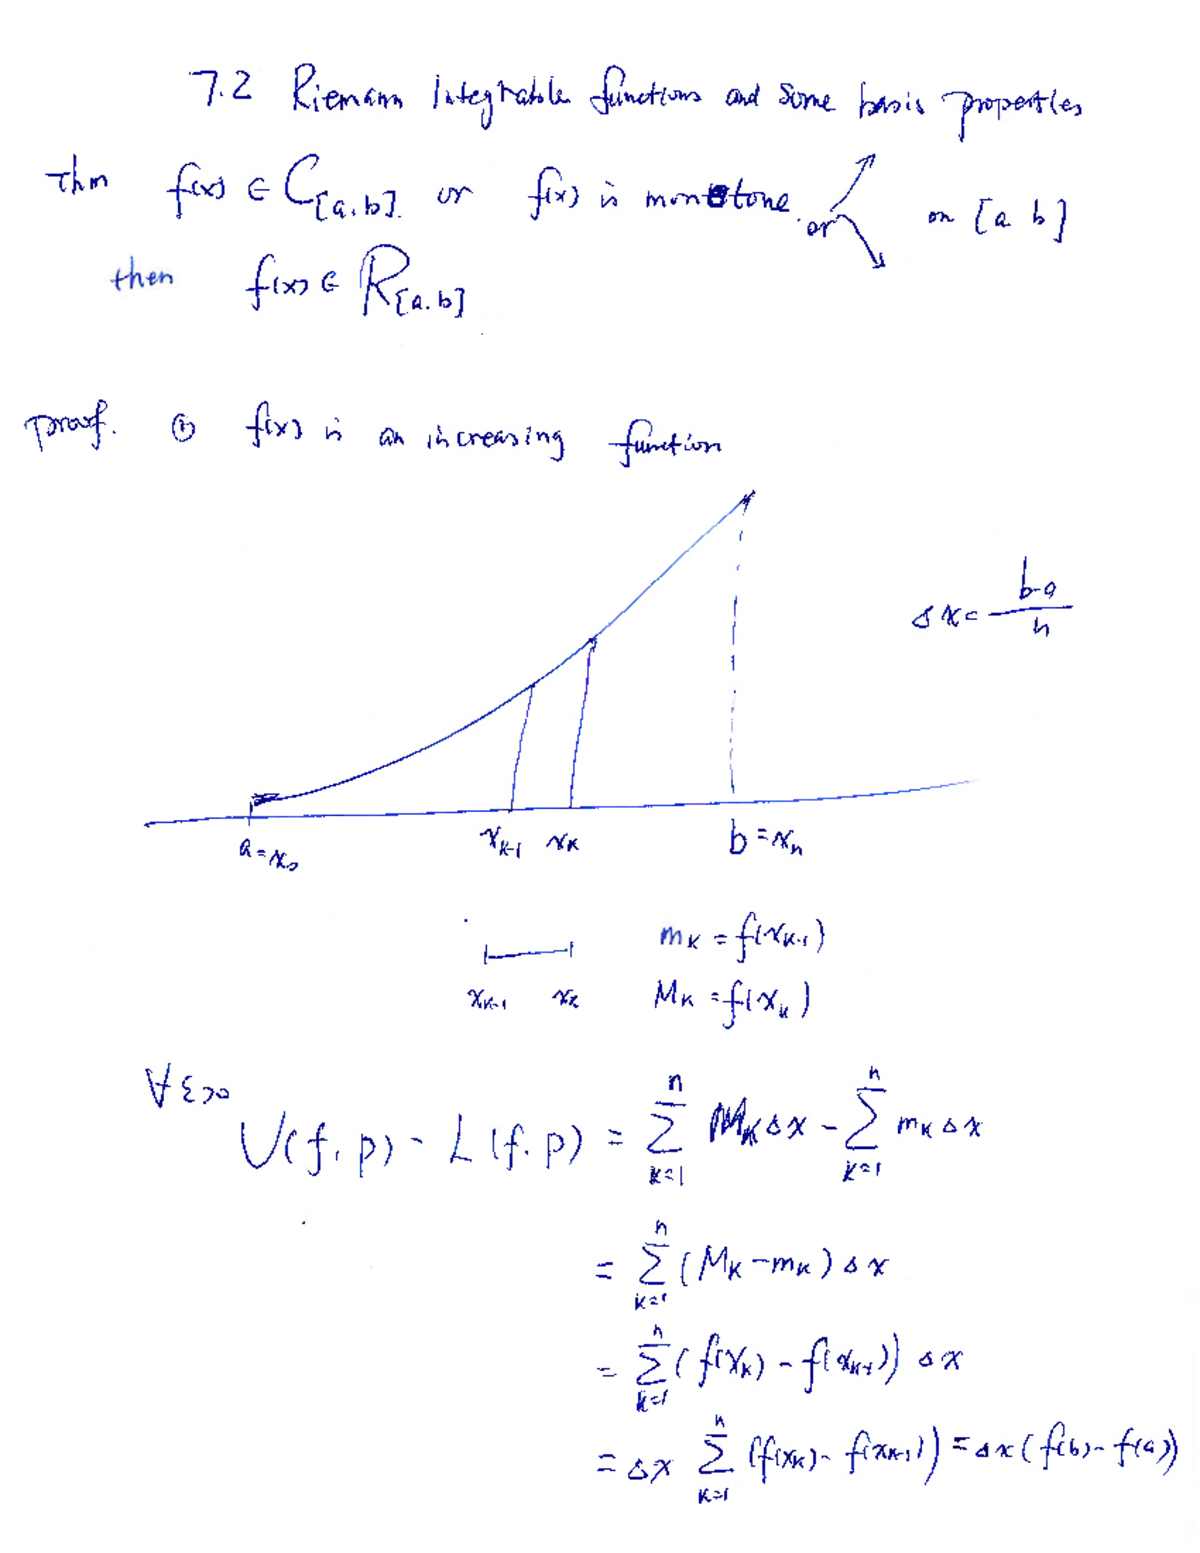 7.2 Riemann Integrable functions and some basic properties
Thm f(x) ∈ C[a.b]. or f(x) is monotone. or ↗ ↘ on [a b]
then f(x) ∈ R[a.b]
proof. ① f(x) is an increasing function
Δx = b-a / n
a = x₀ xₖ₋₁ xₖ b = xₙ
mₖ = f(xₖ₋₁)
xₖ₋₁ xₖ Mₖ = f(xₖ)
∀ ε>0
U(f, p) - L(f. p) = ∑ₖ₌₁ⁿ MₖΔx - ∑ₖ₌₁ⁿ mₖΔx
= ∑ₖ₌₁ⁿ (Mₖ - mₖ) Δx
= ∑ₖ₌₁ⁿ (f(xₖ) - f(xₖ₋₁)) Δx
= Δx ∑ₖ₌₁ⁿ (f(xₖ) - f(xₖ₋₁)) = Δx (f(b) - f(a))